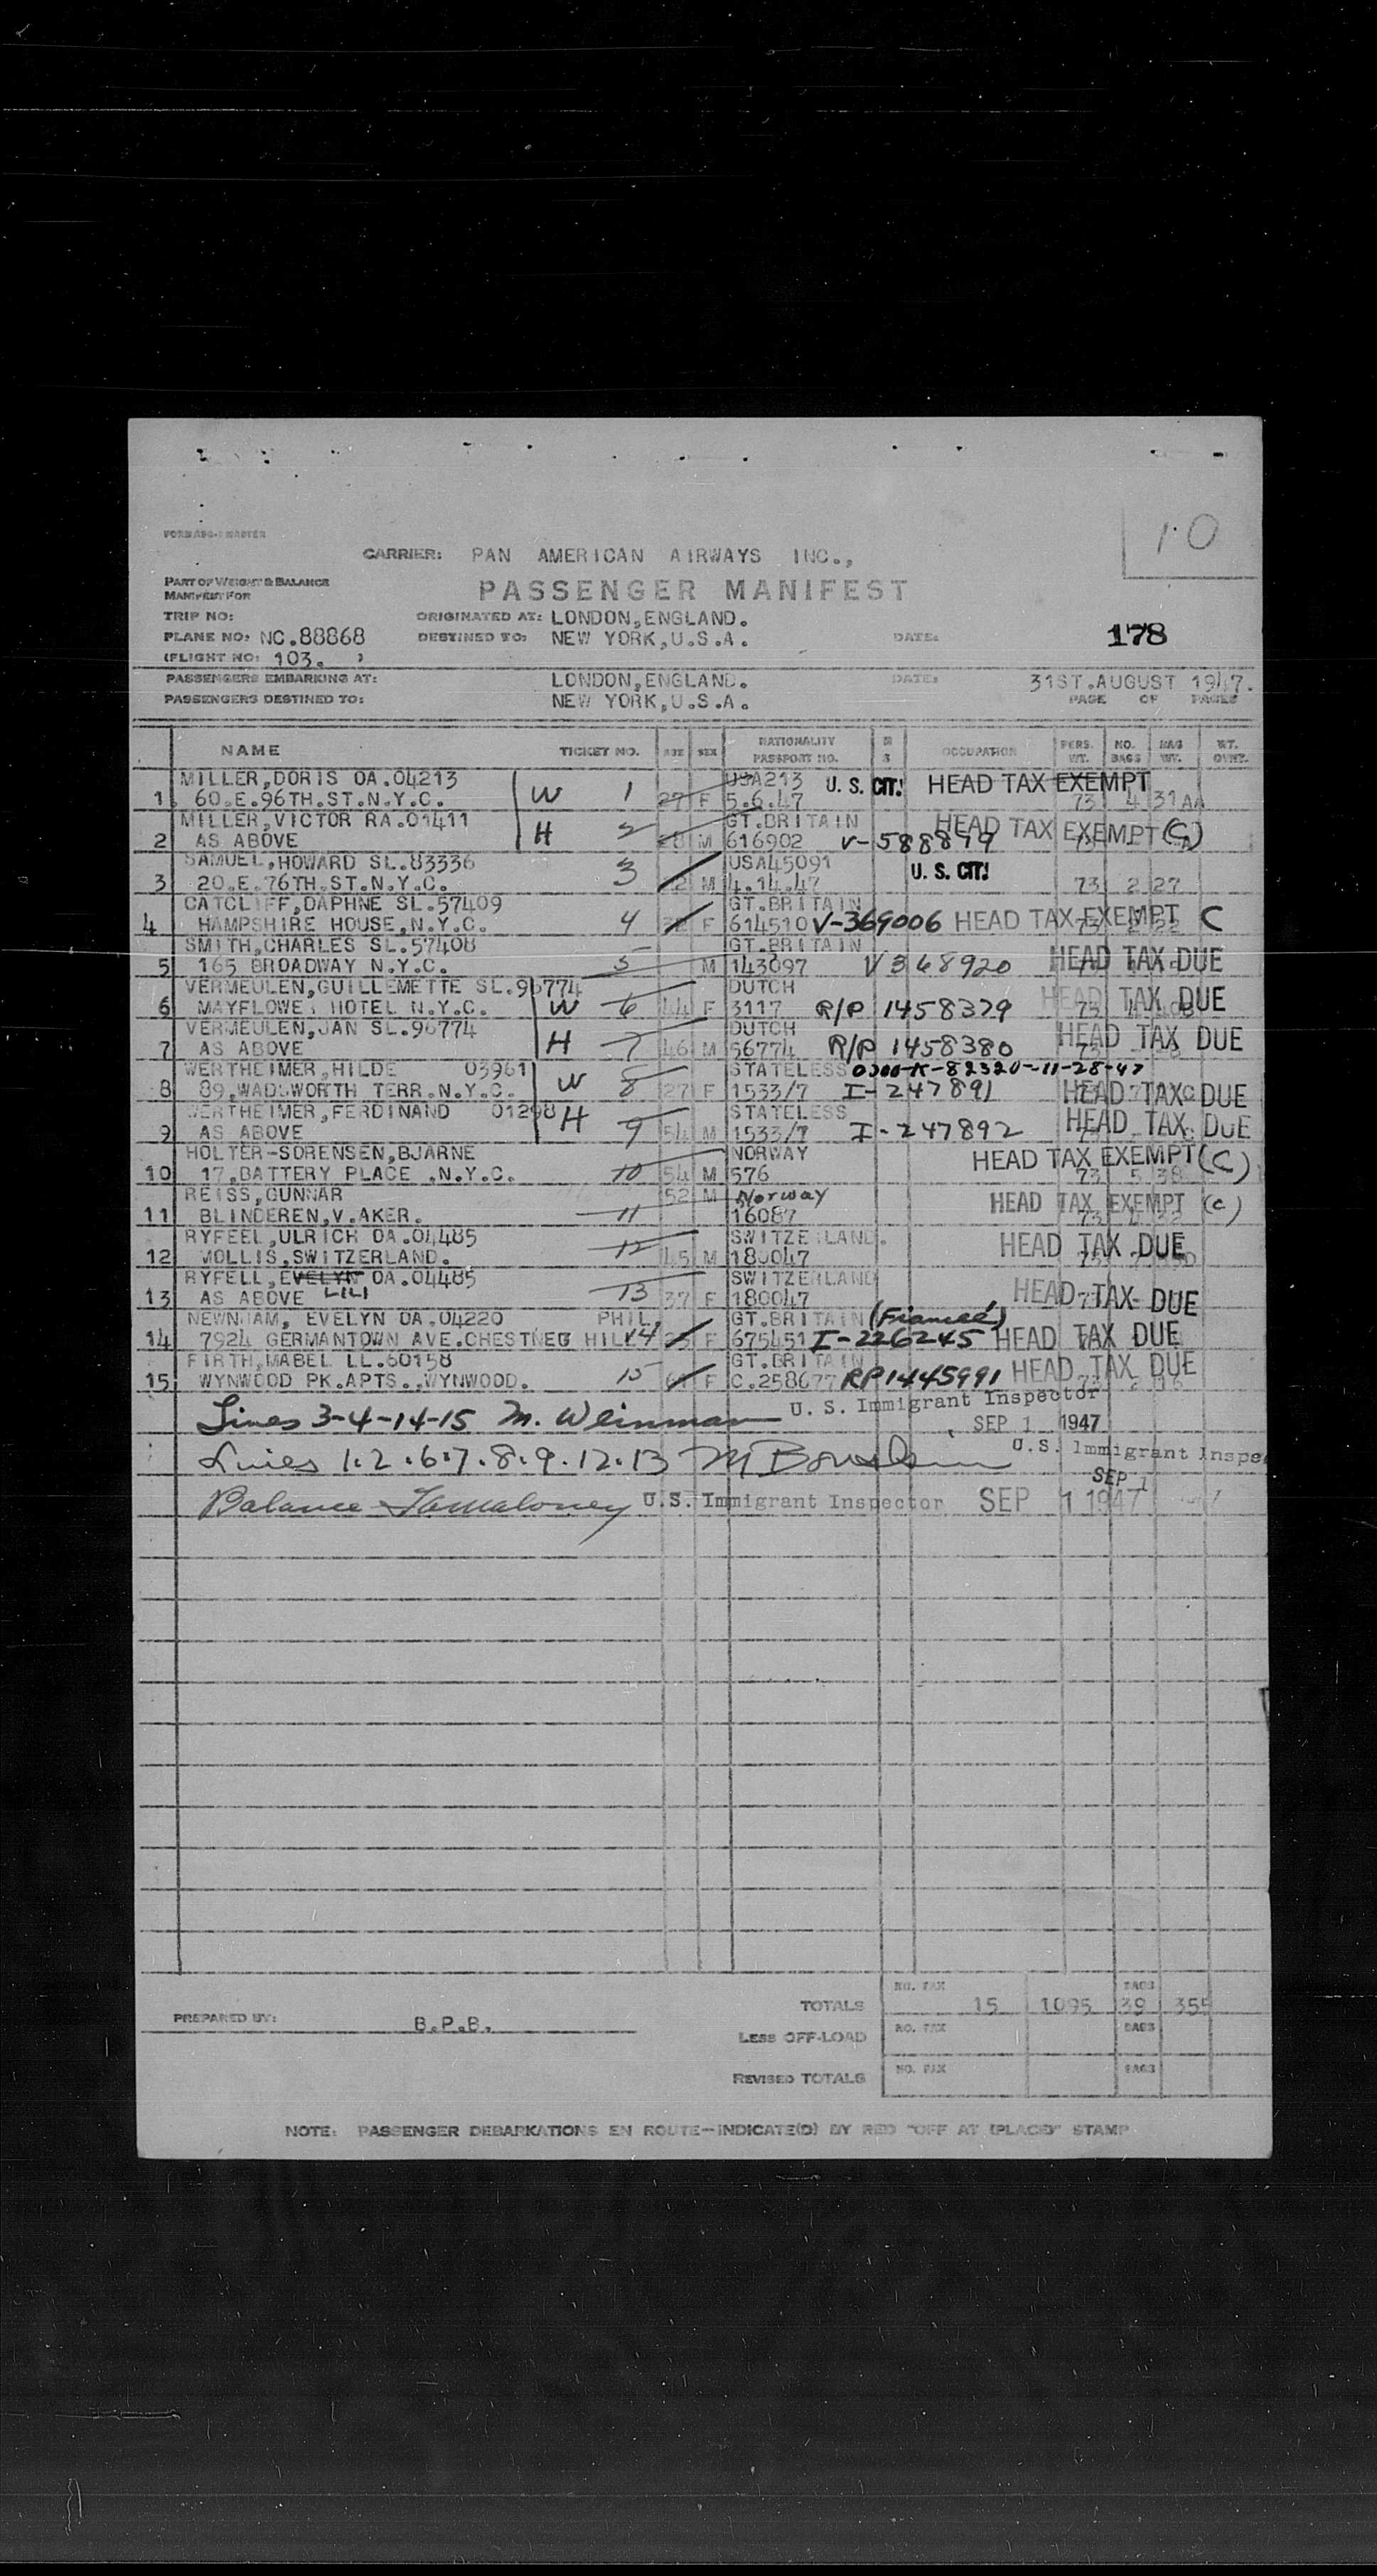 10
FORM
CARRIER: PAN AMERICAN AIRWAYS INC.,
PART OF WEIGHT & BALANCE
MANIFEST FOR
PASSENGER MANIFEST
TRIP NO: ORIGINATED AT: LONDON,ENGLAND.
PLANE NO: NC.88868 DESTINED TO: NEW YORK,U.S.A. DATE: 178
(FLIGHT NO: 103. )
PASSENGERS EMBARKING AT: LONDON,ENGLAND. DATE: 31ST.AUGUST 1947.
PASSENGERS DESTINED TO: NEW YORK,U.S.A. PAGE OF PAGES
NAME TICKET NO. AGE SEX NATIONALITY PASSPORT NO. OCCUPATION PERS. WT. NO. BAGS BAG WT. WT. OVWT.
MILLER,DORIS OA.04213 USA213 U.S. CIT. HEAD TAX EXEMPT
1 60.E.96TH.ST.N.Y.C. W 1 27 F 5.6.47 73 4 31
MILLER,VICTOR RA.01411 GT.BRITAIN HEAD TAX EXEMPT (C)
2 AS ABOVE H 2 M 616902 V-588899
SAMUEL,HOWARD SL.83336 USA45091 U.S. CIT.
3 20.E.76TH.ST.N.Y.C. 3 M 4.14.47 73 2 27
CATCLIFF,DAPHNE SL.57409 GT.BRITAIN
4 HAMPSHIRE HOUSE,N.Y.C. 4 F 614510 V-369006 HEAD TAX EXEMPT C
SMITH,CHARLES SL.57408 GT.BRITAIN
5 165 BROADWAY N.Y.C. 5 M 143097 V 368920 HEAD TAX DUE
VERMEULEN,GUILLEMETTE SL.96774 DUTCH
6 MAYFLOWER HOTEL N.Y.C. W 6 44 F 3117 R/P 1458379 HEAD TAX DUE
VERMEULEN,JAN SL.96774 DUTCH
7 AS ABOVE H 7 46 M 56774 R/P 1458380 HEAD TAX DUE
WERTHEIMER,HILDE 03961 STATELESS 0300-K-82320-11-28-47
8 89.WADSWORTH TERR.N.Y.C. W 8 27 F 1533/7 I-247891 HEAD TAX DUE
WERTHEIMER,FERDINAND 01298 STATELESS
9 AS ABOVE H 9 54 M 1533/7 I-247892 HEAD TAX DUE
HOLTER-SORENSEN,BJARNE NORWAY
10 17.BATTERY PLACE .N.Y.C. 10 54 M 576 HEAD TAX EXEMPT (C)
REISS,GUNNAR 52 M Norway
11 BLINDEREN,V.AKER. 11 16087 HEAD TAX EXEMPT (C)
RYFEEL,ULRICH OA.04485 SWITZERLAND.
12 MOLLIS,SWITZERLAND. 12 45 M 180047 HEAD TAX DUE
RYFELL,EVELYN OA.04485 SWITZERLAND
13 AS ABOVE LILI 13 37 F 180047 HEAD TAX DUE
NEWNHAM, EVELYN OA.04220 PHIL, GT.BRITAIN (Fiancee)
14 7924 GERMANTOWN AVE.CHESTNEG HILL 14 F 675451 I-226245 HEAD TAX DUE
FIRTH,MABEL LL.60158 GT.BRITAIN
15 WYNWOOD PK.APTS.,WYNWOOD. 15 F C.258677 RP1445991 HEAD TAX DUE
Lines 3-4-14-15 M. Weinman U.S. Immigrant Inspector
SEP 1 1947
Lines 1.2.6.7.8.9.12.13 U.S. Immigrant Inspe
SEP 1
Balance U.S. Immigrant Inspector SEP 1 1947
NO. PAX BAGS
TOTALS 15 1095 39 355
PREPARED BY: B.P.B.
LESS OFF-LOAD NO. PAX BAGS
REVISED TOTALS NO. PAX BAGS
NOTE: PASSENGER DEBARKATIONS EN ROUTE—INDICATE(D) BY RED "OFF AT (PLACE)" STAMP